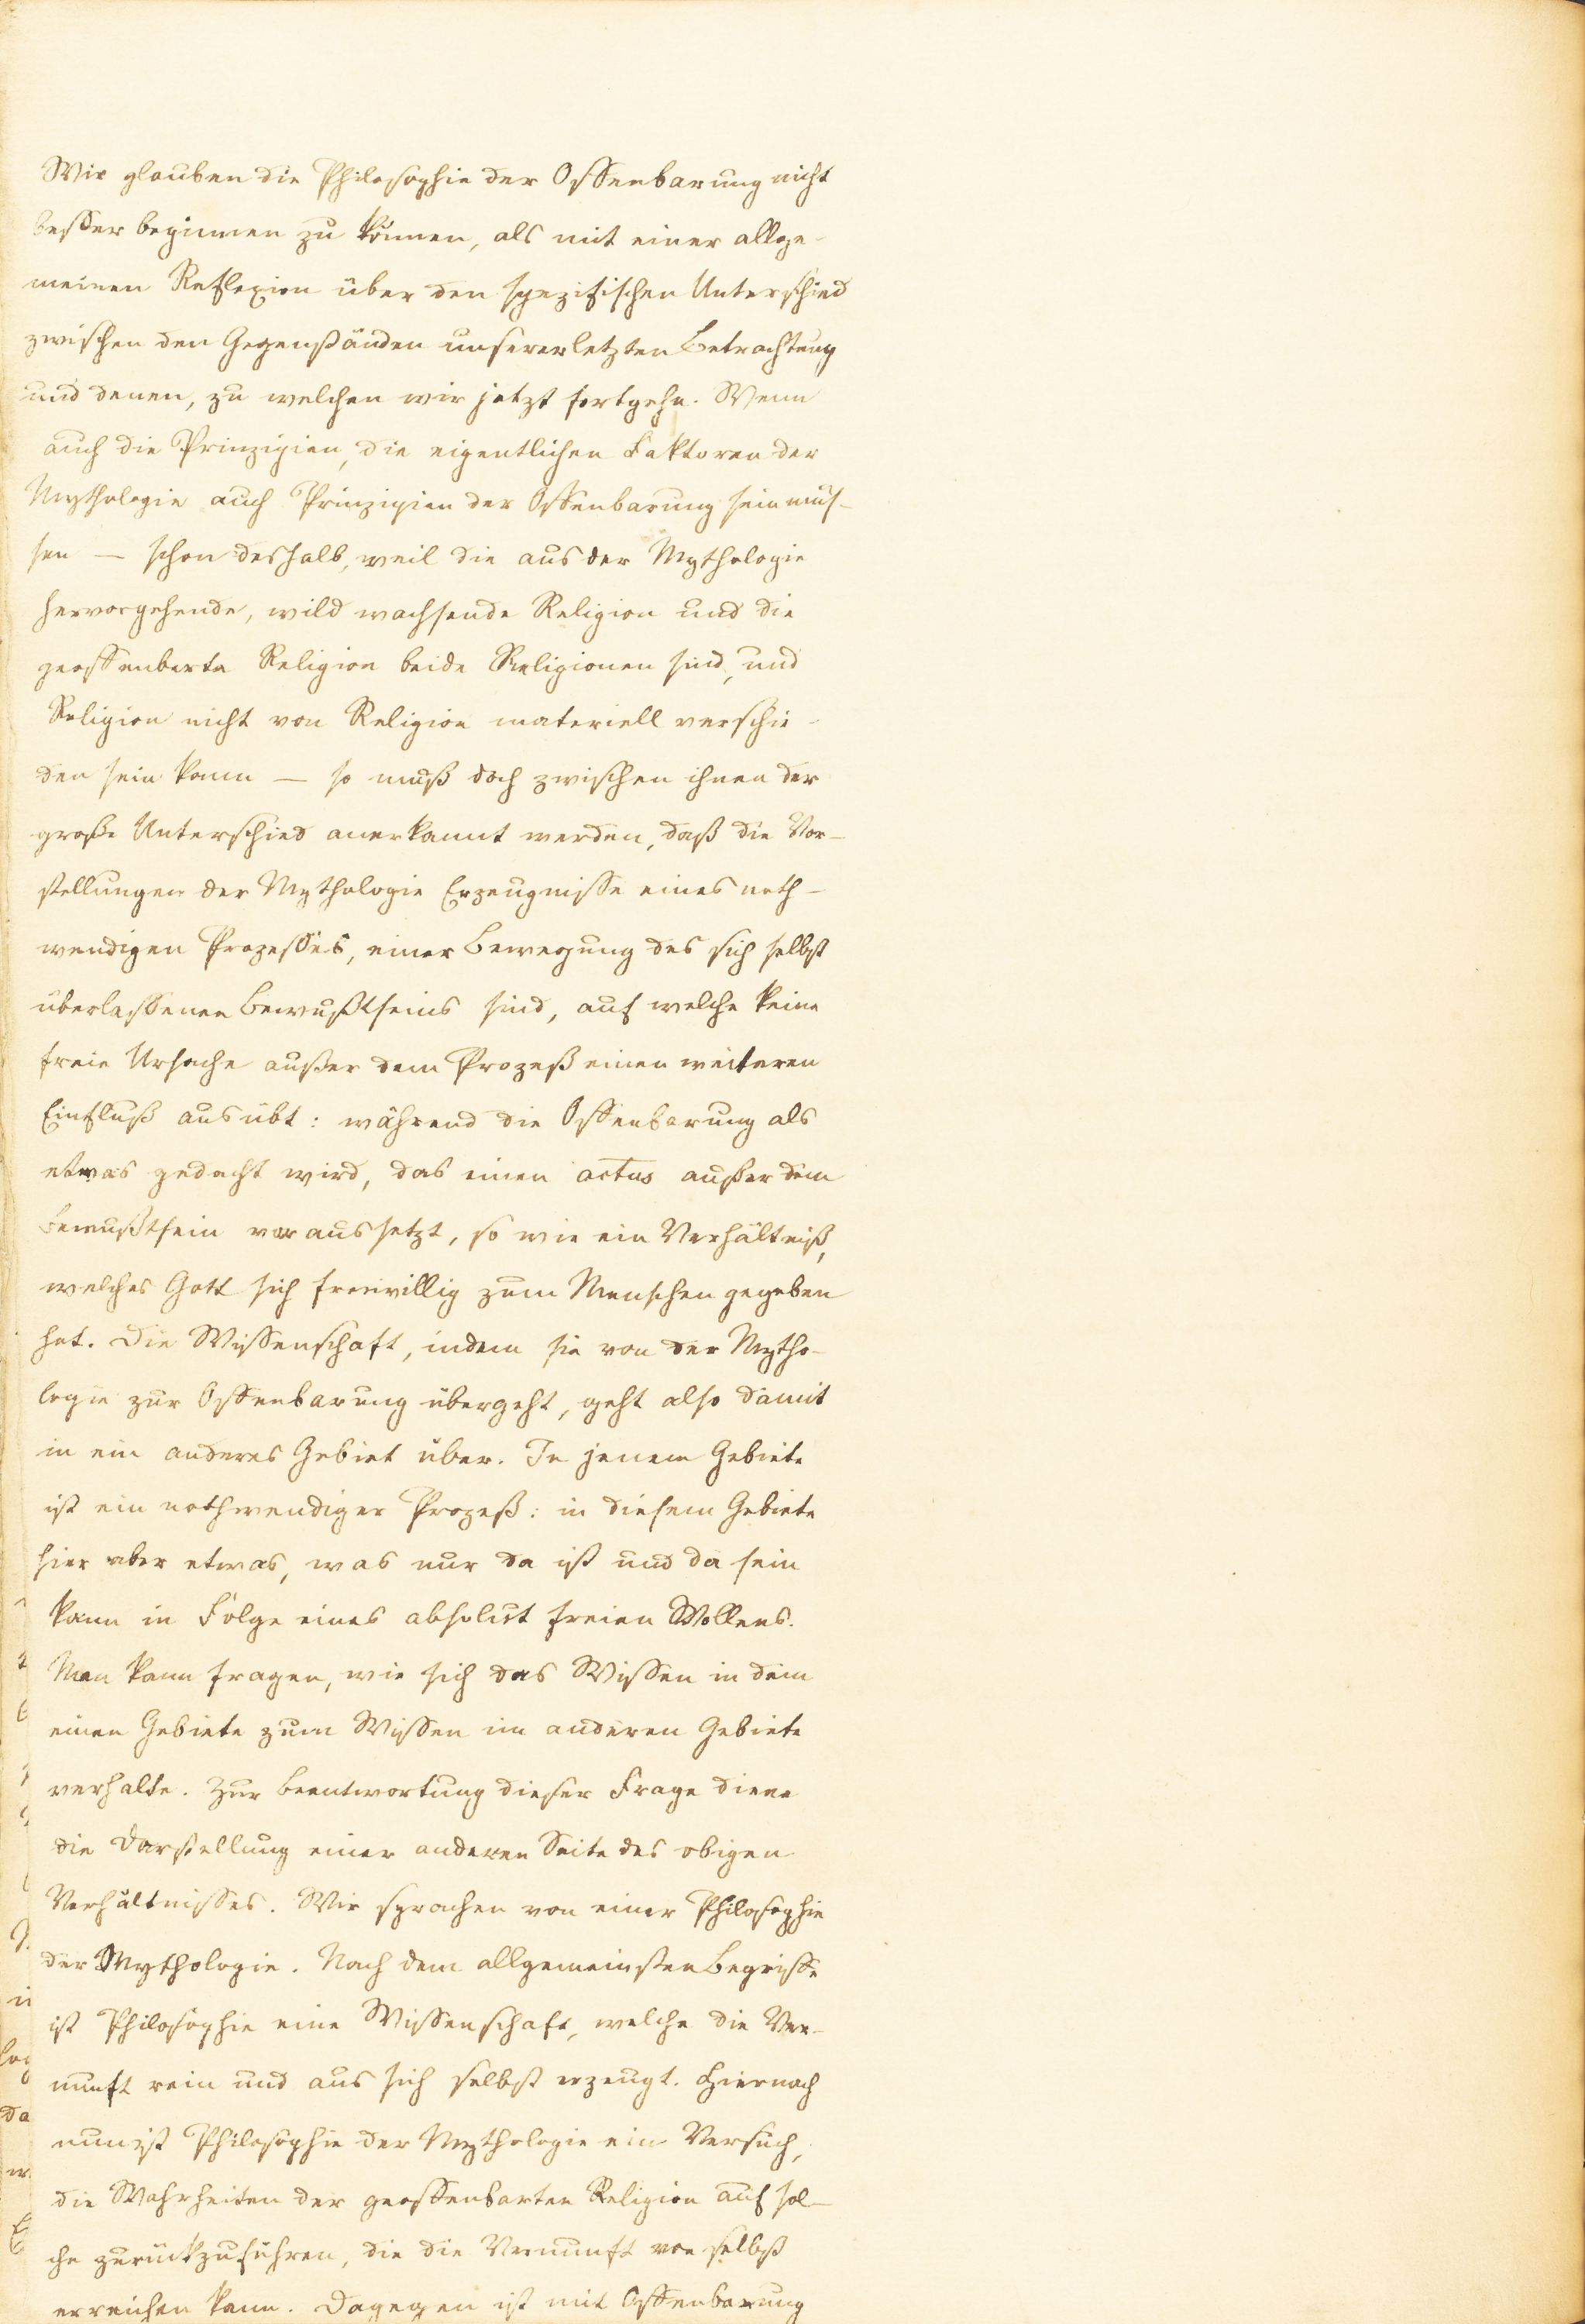 Wir glauben die Philosophie der Offenbarung nicht
besser beginnen zu können, als mit einer allge-
meinen Reflexion über den spezifischen Unterschied
zwischen den Gegenständen unserer letzten Betrachtung
und denen, zu welchen wir jetzt fortgehn. Wenn
auch die Prinzipien, die eigentlichen Faktoren der
Mythologie auch Prinzipien der Offenbarung sein müs-
sen — schon deshalb, weil die aus der Mythologie
hervorgehende, wild wachsende Religion und die
geoffenbarte Religion beide Religionen sind, und
Religion nicht von Religion materiell verschie-
den sein kann — so muß doch zwischen ihnen der
große Unterschied anerkannt werden, daß die Vor-
stellungen der Mythologie Erzeugnisse eines noth-
wendigen Prozesses, einer Bewegung des sich selbst
überlassenen Bewußtseins sind, auf welche keine
freie Ursache außer dem Prozeß einen weiteren
Einfluß ausübt: während die Offenbarung als
etwas gedacht wird, das einen actus außer dem
Bewußtsein voraussetzt, so wie ein Verhältniß,
welches Gott sich freiwillig zum Menschen gegeben
hat. Die Wissenschaft, indem sie von der Mytho-
logie zur Offenbarung übergeht, geht also damit
in ein anderes Gebiet über. In jenem Gebiete
ist ein nothwendiger Prozeß: in diesem Gebiete
hier aber etwas, was nur da ist und da sein
kann in Folge eines absolut freien Wollens.
Man kann fragen, wie sich das Wissen in dem
einen Gebiete zum Wissen im anderen Gebiete
verhalte. Zur Beantwortung dieser Frage diene
die Darstellung einer anderen Seite des obigen
Verhältnisses. Wir sprachen von einer Philosophie
der Mythologie. Nach dem allgemeinsten Begriffe
ist Philosophie eine Wissenschaft, welche die Ver-
nunft rein und aus sich selbst erzeugt. Hiernach
nun ist Philosophie der Mythologie ein Versuch,
die Wahrheiten der geoffenbarten Religion auf sol-
che zurückzuführen, die die Vernunft von selbst
erreichen kann. Dagegen ist mit Offenbarung